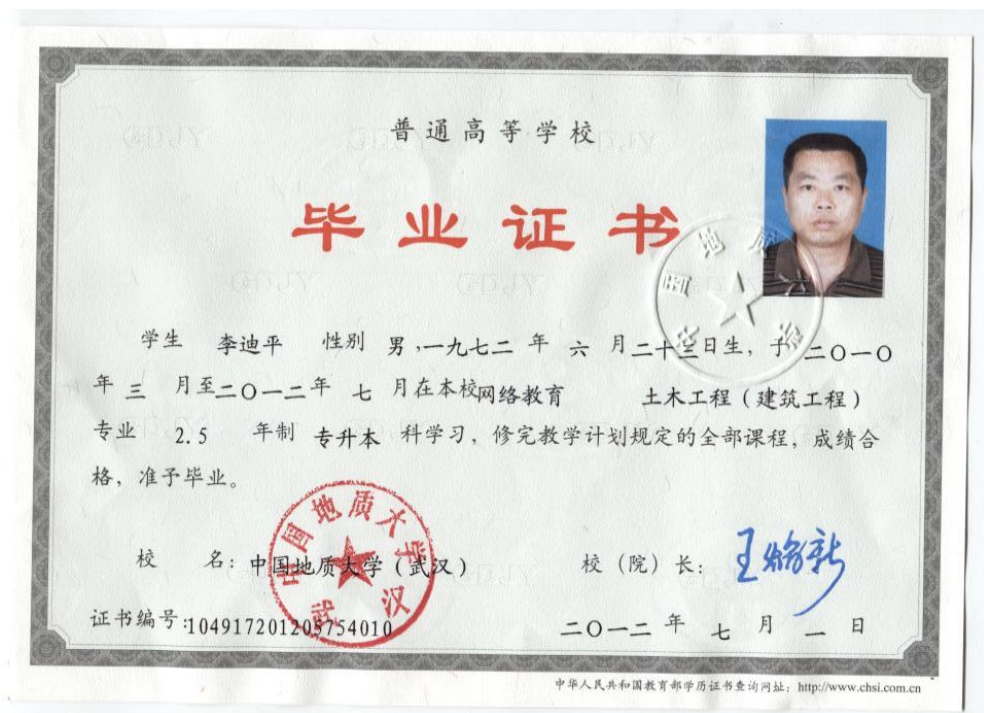 普通高等学校
毕业证书
学生 李迪平 性别 男,一九七二 年 六 月二十三日生, 于 二〇一〇
年 三 月至二〇一二年 七 月在本校网络教育 土木工程(建筑工程)
专业 2.5 年制 专升本 科学习, 修完教学计划规定的全部课程, 成绩合
格, 准予毕业。
校 名: 中国地质大学(武汉) 校(院)长: 王焰新
中国地质大学
武汉
证书编号:104917201205754010 二〇一二 年 七 月 一 日
中华人民共和国教育部学历证书查询网址: http://www.chsi.com.cn